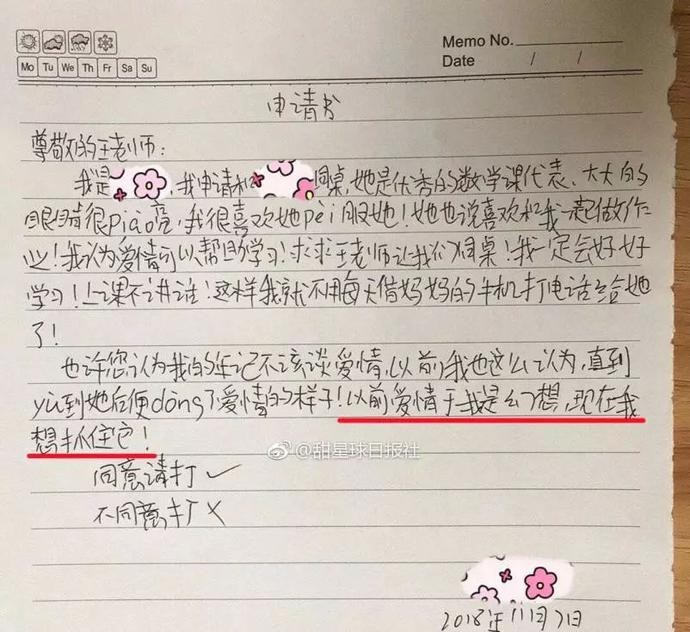 Memo No.
Mo Tu We Th Fr Sa Su
Date / /
申请书
尊敬的王老师：
我是，我申请和同桌，她是优秀的数学课代表、大大的
眼睛很piào亮，我很喜欢她pèi服她！她也说喜欢和我一起做作
业！我认为爱情可以帮助学习！求求王老师让我们同桌！我一定会好好
学习！上课不讲话！这样我就不用每天借妈妈的手机打电话给她
了！
也许您认为我的年记不该谈爱情，以前我也这么认为，直到
yù到她后便dǒng了爱情的样子！以前爱情于我是幻想，现在我
想抓住它！
@甜星球日报社
同意请打✓
不同意打✗
2018年11月7日